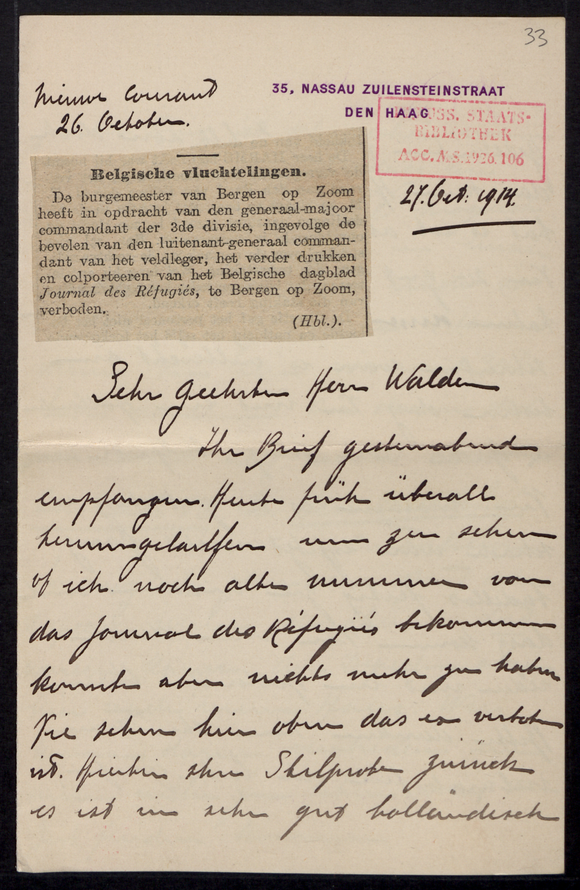 33
Nieuwe Courant
26. October.
35, NASSAU ZUILENSTEINSTRAAT
DEN HAAG
PREUSS. STAATS-
BIBLIOTHEK
ACC. MS. 1926. 106
27. Oct: 1914.
Belgische vluchtelingen.
De burgemeester van Bergen op Zoom
heeft in opdracht van den generaal-majoor
commandant der 3de divisie, ingevolge de
bevelen van den luitenant-generaal comman-
dant van het veldleger, het verder drukken
en colporteeren van het Belgische dagblad
Journal des Réfugiés, te Bergen op Zoom,
verboden.
(Hbl.).
Sehr geehrten Herr Walden
Ihr Brief gesternabend
empfangen. Heute früh überall
herumgelaufen um zu sehen
of ich noch alte nummer von
das Journal des Réfugiés bekommen
konnte aber nichts mehr zu haben
Sie sehen hier oben das es verboten
ist. Hierbei ihre Stilprobe zurück
es ist in sehr gut holländisch